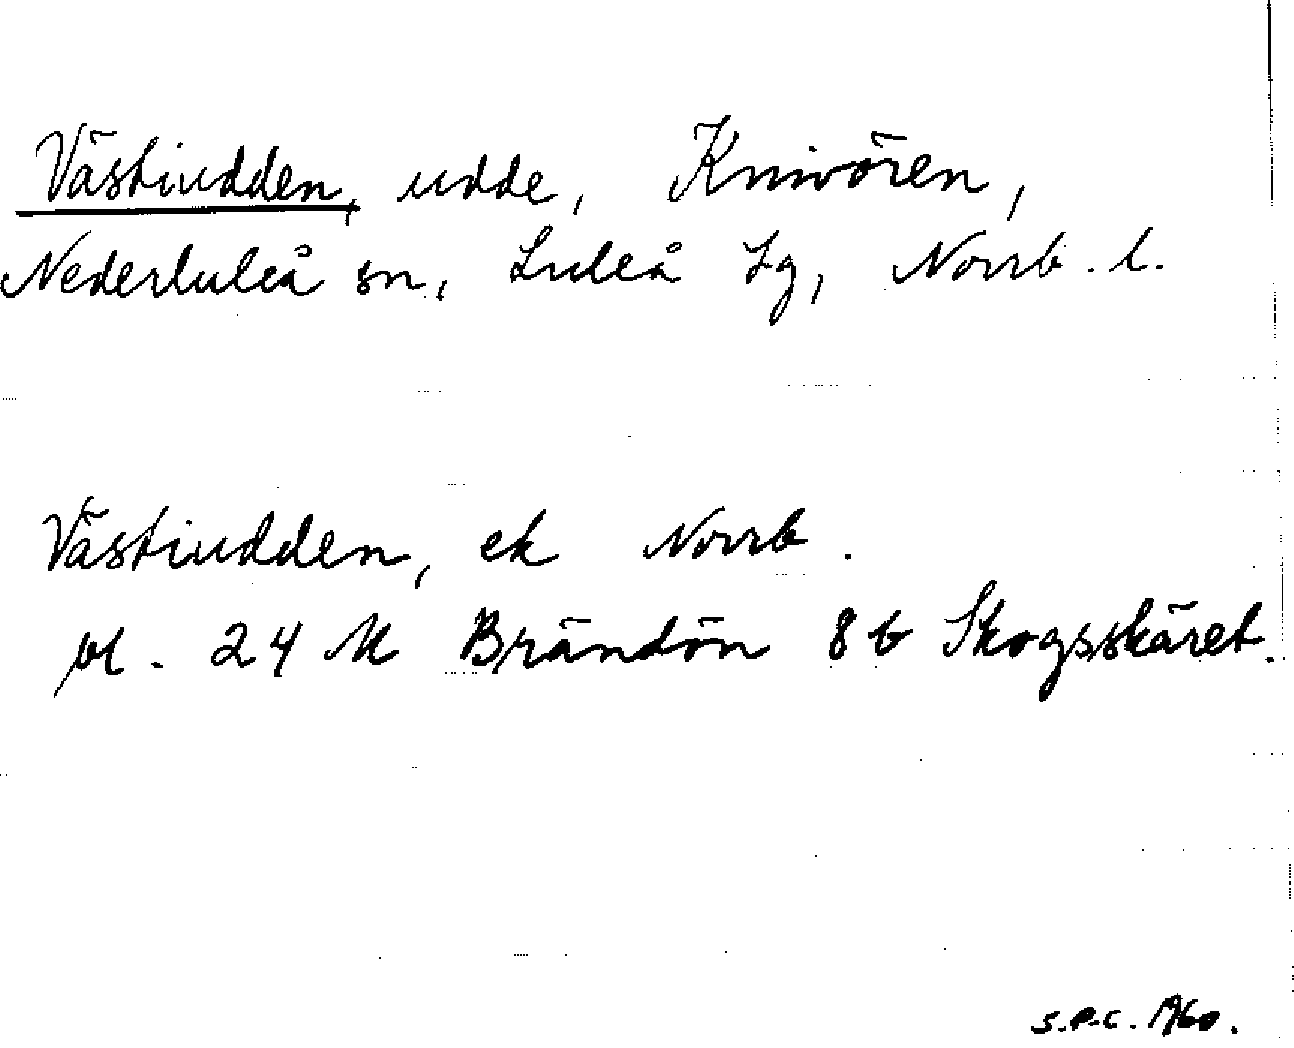 Västiudden, udde, Knivören,
Nederluleå sn, Luleå lg, Norrb. l.
Västiudden, ek Norrb.
bl. 24 M Brändön 8 b Skogsskäret.
S.P.C. 1960.